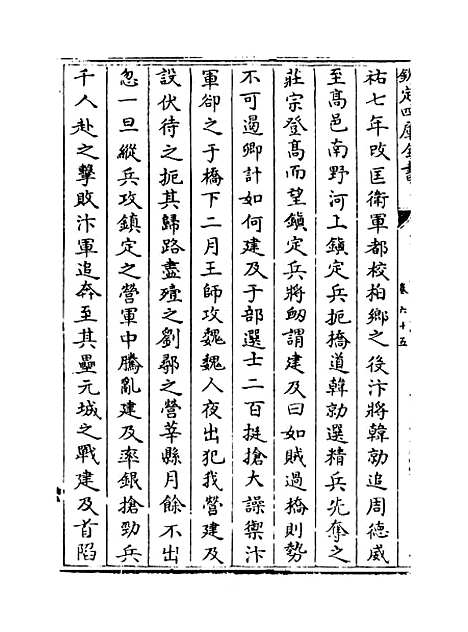 欽定四庫全書
卷六十五
祐七年改匡衛軍都校柏鄉之役汴將韓勍追周德威
至髙邑南野河上鎭定兵扼橋道韓勍選精兵先奪之
莊宗登髙而望鎭定兵將衂謂建及曰如賊過橋則勢
不可遏卿計如何建及于部選士二百挺搶大譟禦汴
軍卻之于橋下二月王師攻魏魏人夜出犯我營建及
設伏待之扼其歸路盡殪之劉鄩之營莘縣月餘不出
忽一旦縱兵攻鎮定之營軍中騰亂建及率銀搶勁兵
千人赴之擊敗汴軍追奔至其壘元城之戰建及首陷